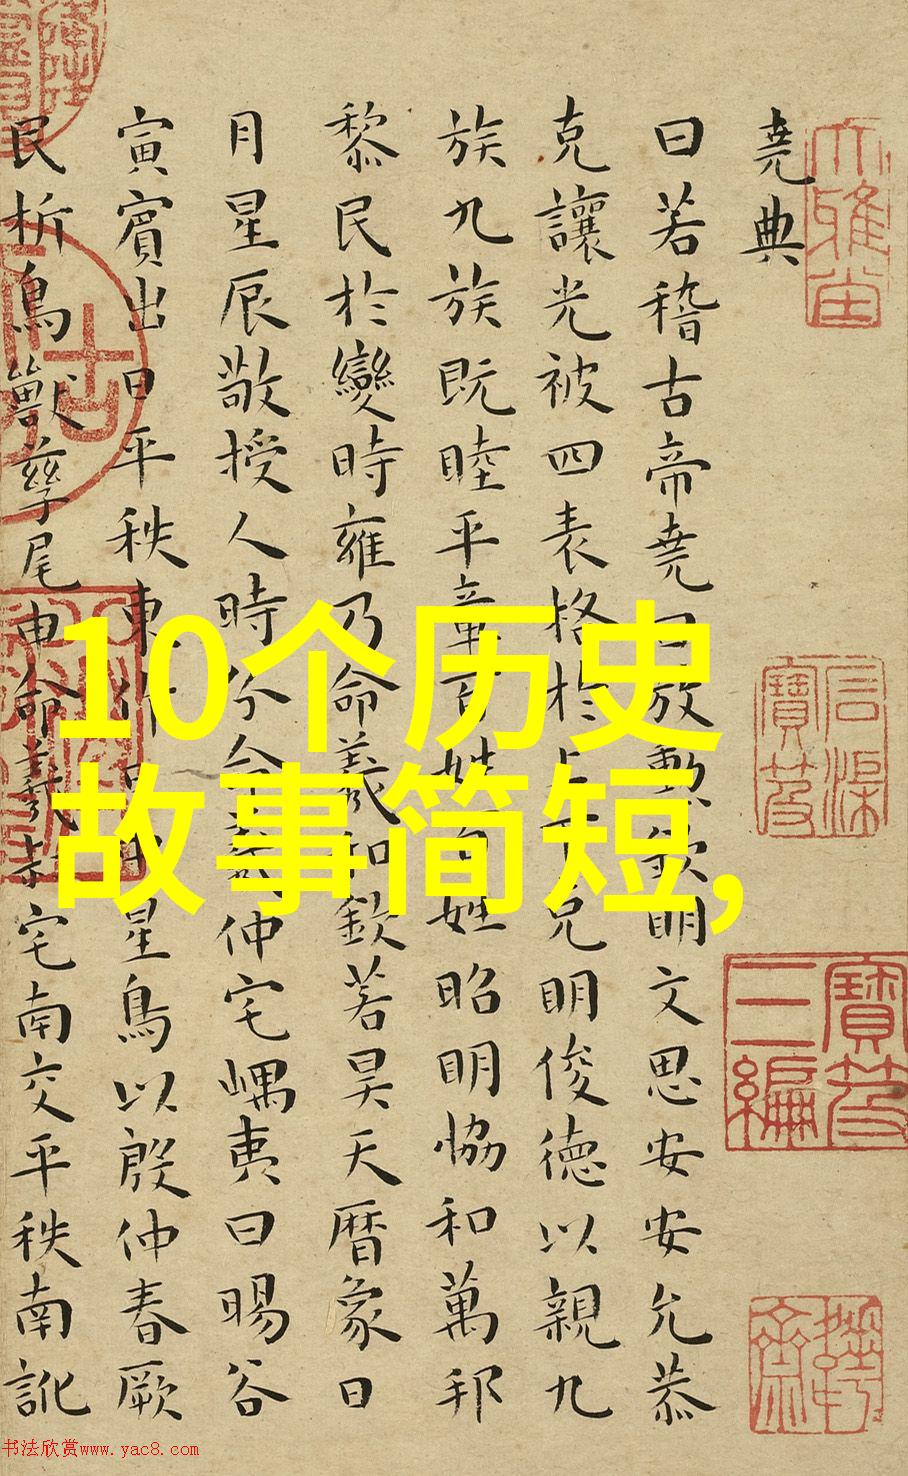 堯典
曰若稽古帝堯曰放勳欽明文思安安允恭
克讓光被四表格於上下克明俊德以親九
族九族既睦平章百姓百姓昭明協和萬邦
黎民於變時雍乃命羲和欽若昊天曆象日
月星辰敬授人時分命羲仲宅嵎夷曰暘谷
寅賓出日平秩東作日中星鳥以殷仲春厥
民析鳥獸孳尾申命羲叔宅南交平秩南訛
10个历史
故事简短,
寶笈
三編
书法欣赏www.yac8.com